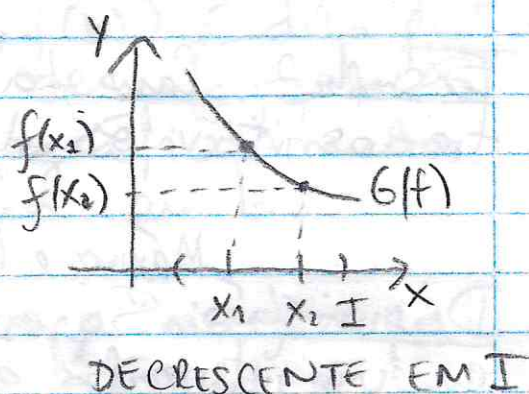 Y
f(x₁)
f(x₂)
G(f)
x₁ x₂ I x
DECRESCENTE EM I